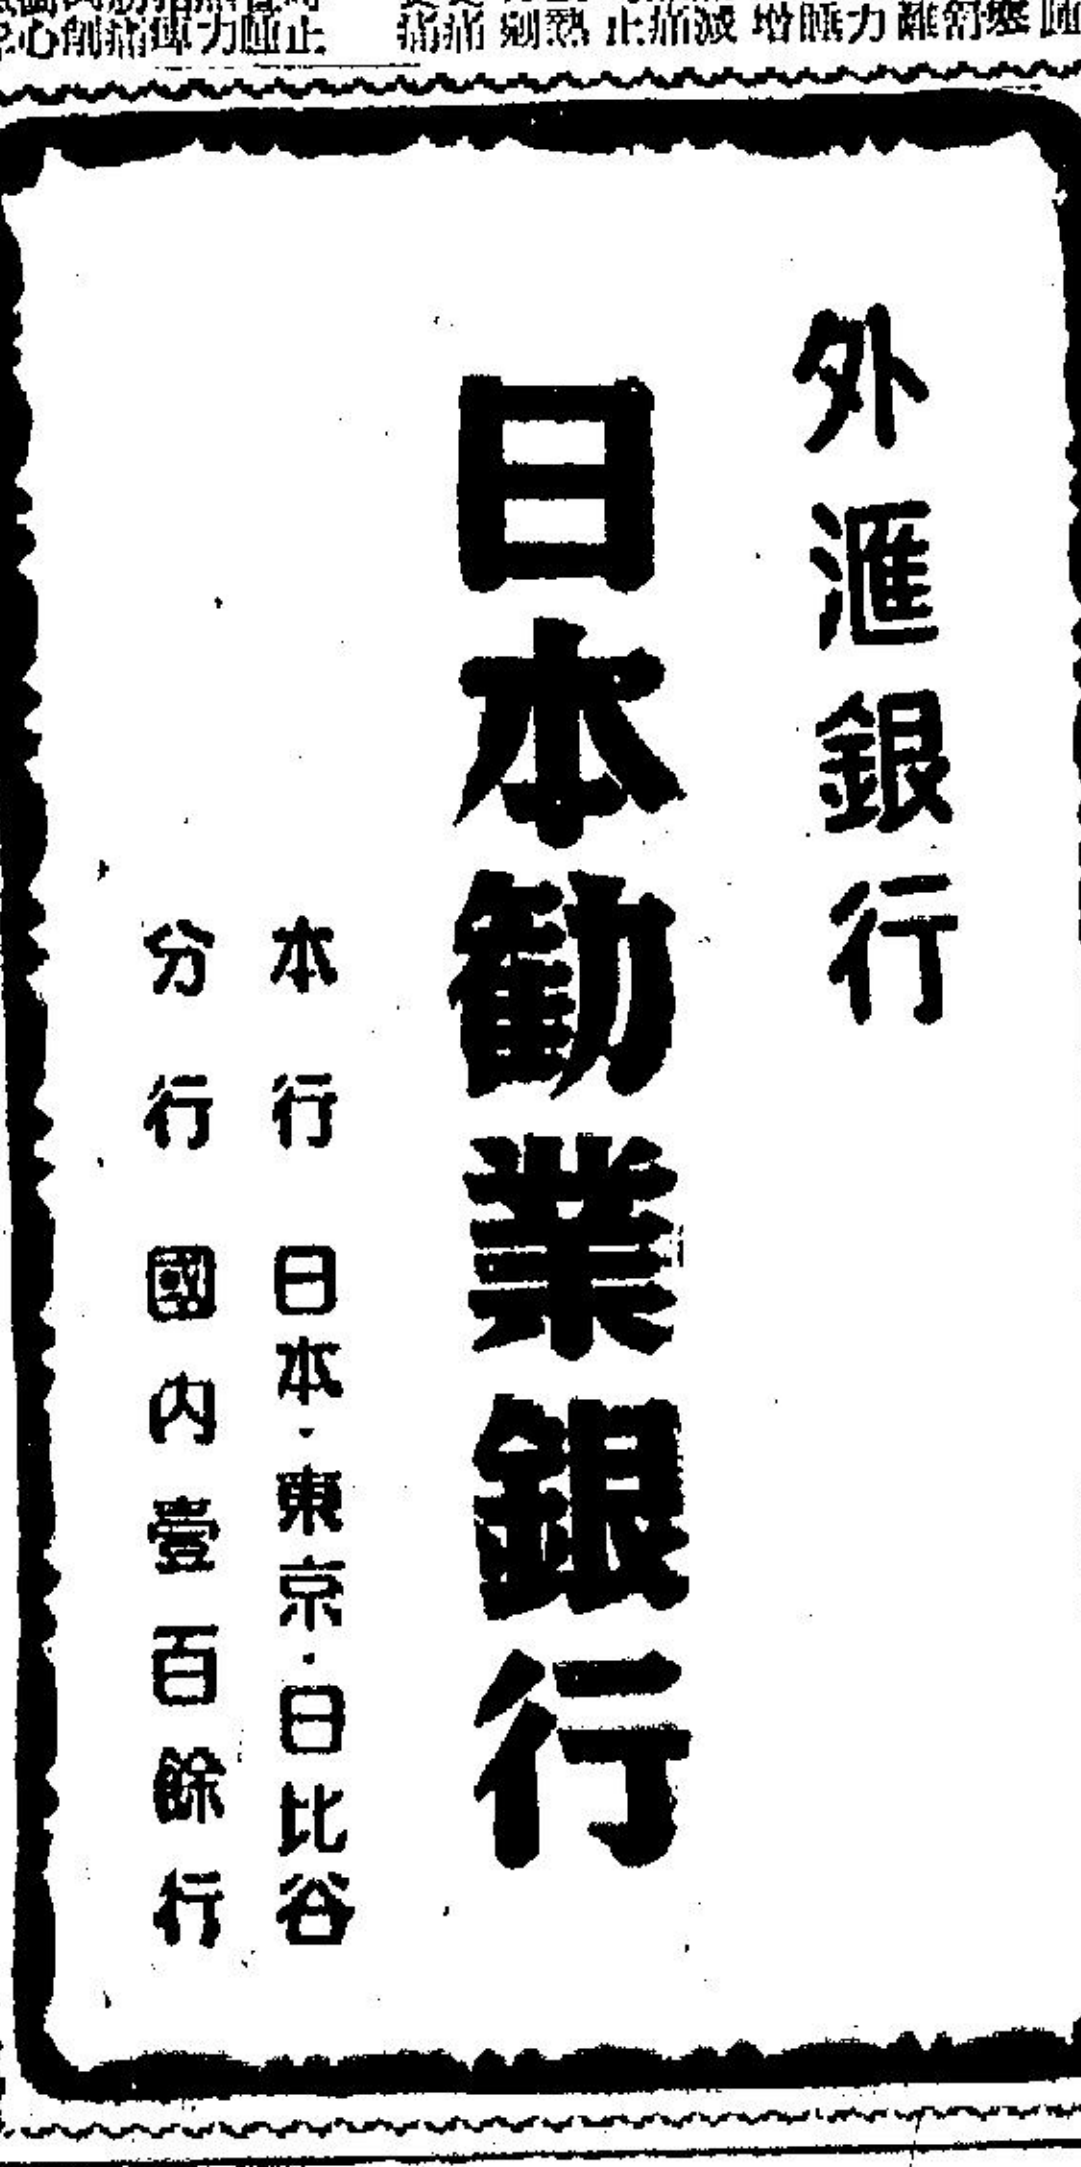 外滙銀行
日本勧業銀行
本行 日本·東京·日比谷
分行 國內壹百餘行